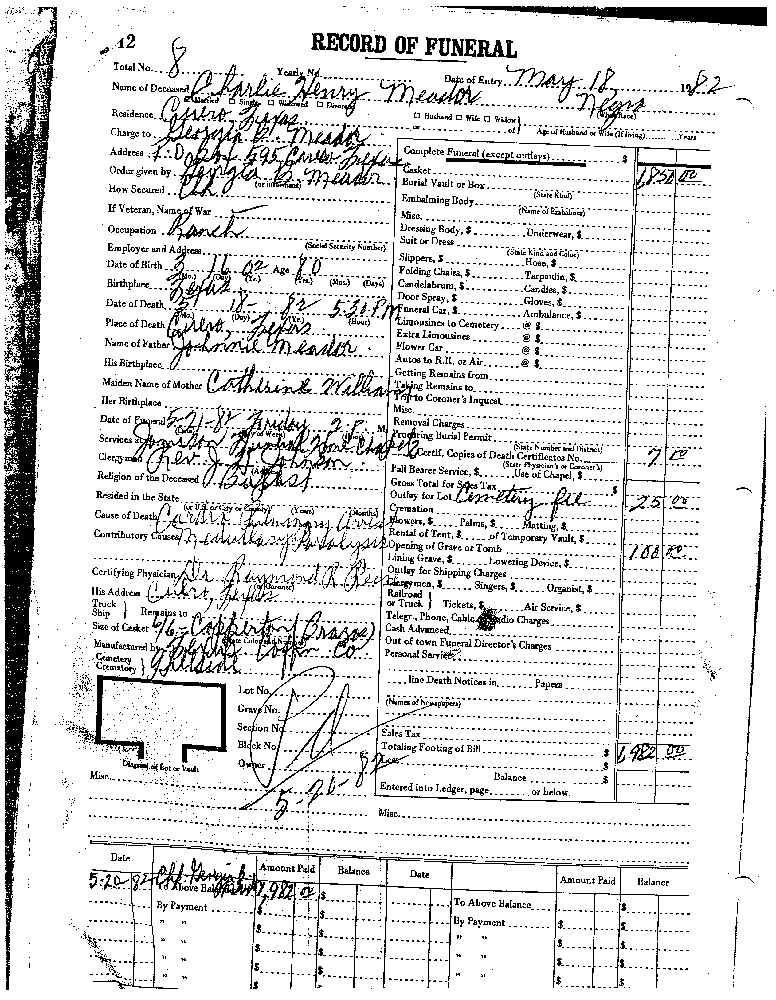 12
RECORD OF FUNERAL
Total No. 8 Yearly No. Date of Entry May 18 1982
Name of Deceased Charlie Henry Meador Negro
Married Single Widowed Divorced (What Race)
Residence Cuero Texas Husband Wife Widow of Age of Husband or Wife (if living) Years
Charge to Georgia B. Meador
Address P.O. Box 595 Cuero Texas
Order given by Georgia B Meador
(or informant)
How Secured
If Veteran, Name of War
Occupation Ranch
Employer and Address (Social Security Number)
Date of Birth 3 16 02 Age 80
(Mo.) (Day) (Yr.) (Yrs.) (Mos.) (Days)
Birthplace Texas
Date of Death 5 18- 82 5:30 P.M.
(Mo.) (Day) (Yr.) (Hour)
Place of Death Cuero, Texas
Name of Father Johnnie Meador
His Birthplace
Maiden Name of Mother Catherine Williams
Her Birthplace
Date of Funeral 5-21-82 Friday 2 P. M.
Services at Funeral Home Chapel
Clergyman Rev. J. Johnson
Religion of the Deceased Baptist
Resided in the State
(or U.S. or City or County) (Years) (Months)
Cause of Death Cardio Pulmonary Arrest
Contributory Causes
Certifying Physician Dr. Raymond R Reese
His Address Cuero, Texas
Truck Ship Remains to
Size of Casket 6/6 - Copperton (Brazos)
Manufactured by Coffin Co
Cemetery Crematory Hillside
Lot No.
Grave No.
Section No.
Block No.
Owner
Diagram of Lot or Vault
Pd
5-26-82
Misc.
Complete Funeral (except outlays) $
Casket 1,850 00
Burial Vault or Box
(State Kind)
Embalming Body
(Name of Embalmer)
Misc.
Dressing Body, $ Underwear, $
Suit or Dress
(State Kind and Color)
Slippers, $ Hose, $
Folding Chairs, $ Tarpaulin, $
Candelabrum, $ Candles, $
Door Spray, $ Gloves, $
Funeral Car, $ Ambulance, $
Limousines to Cemetery @ $
Extra Limousines @ $
Flower Car @ $
Autos to R.R. or Air @ $
Getting Remains from
Taking Remains to
Trip to Coroner's Inquest
Misc.
Removal Charges
Procuring Burial Permit
(State Number and District)
Certif. Copies of Death Certificates No. 7 00
(State Physician's or Coroner's)
Pall Bearer Service, $ Use of Chapel, $
Gross Total for Sales Tax $
Outlay for Lot Cemetery fee 25 00
Cremation
Flowers, $ Palms, $ Matting, $
Rental of Tent, $ of Temporary Vault, $
Opening of Grave or Tomb 100 00
Lining Grave, $ Lowering Device, $
Outlay for Shipping Charges
Clergymen, $ Singers, $ Organist, $
Railroad or Truck Tickets, $ Air Service, $
Telegr., Phone, Cable, Radio Charges
Cash Advanced
Out of town Funeral Director's Charges
Personal Service
line Death Notices in Papers
(Names of Newspapers)
Sales Tax
Totaling Footing of Bill $ 1,982 00
$
Balance $
Entered into Ledger, page or below.
Misc.
Date Amount Paid Balance Date Amount Paid Balance
5-20 82 To Above Balance 1,982 00 $ To Above Balance $
By Payment $ By Payment $ $
" " $ " " $ $
" " $ " " $ $
" " $ " " $ $